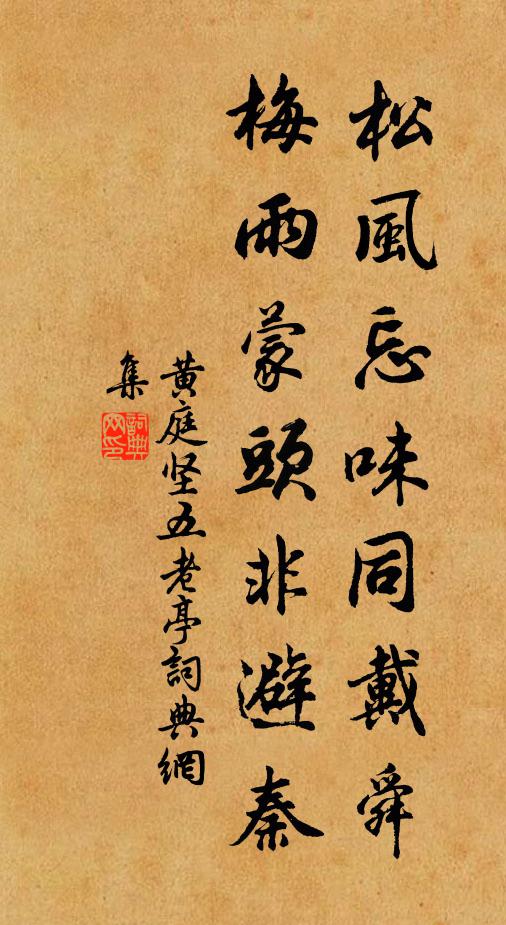 松風忘味同戴舜
梅雨蒙頭非避秦
黄庭坚五老亭詞典網
集
詞典
网印